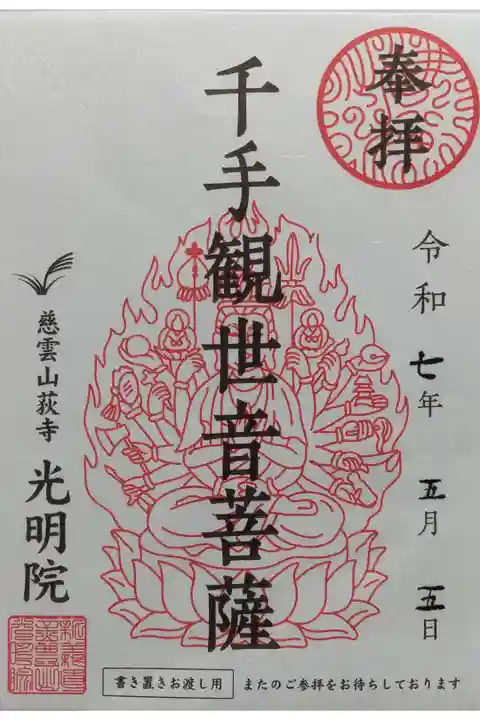 奉拝
令和七年 五月 五日
千手観世音菩薩
慈雲山荻寺 光明院
書き置きお渡し用
またのご参拝をお待ちしております